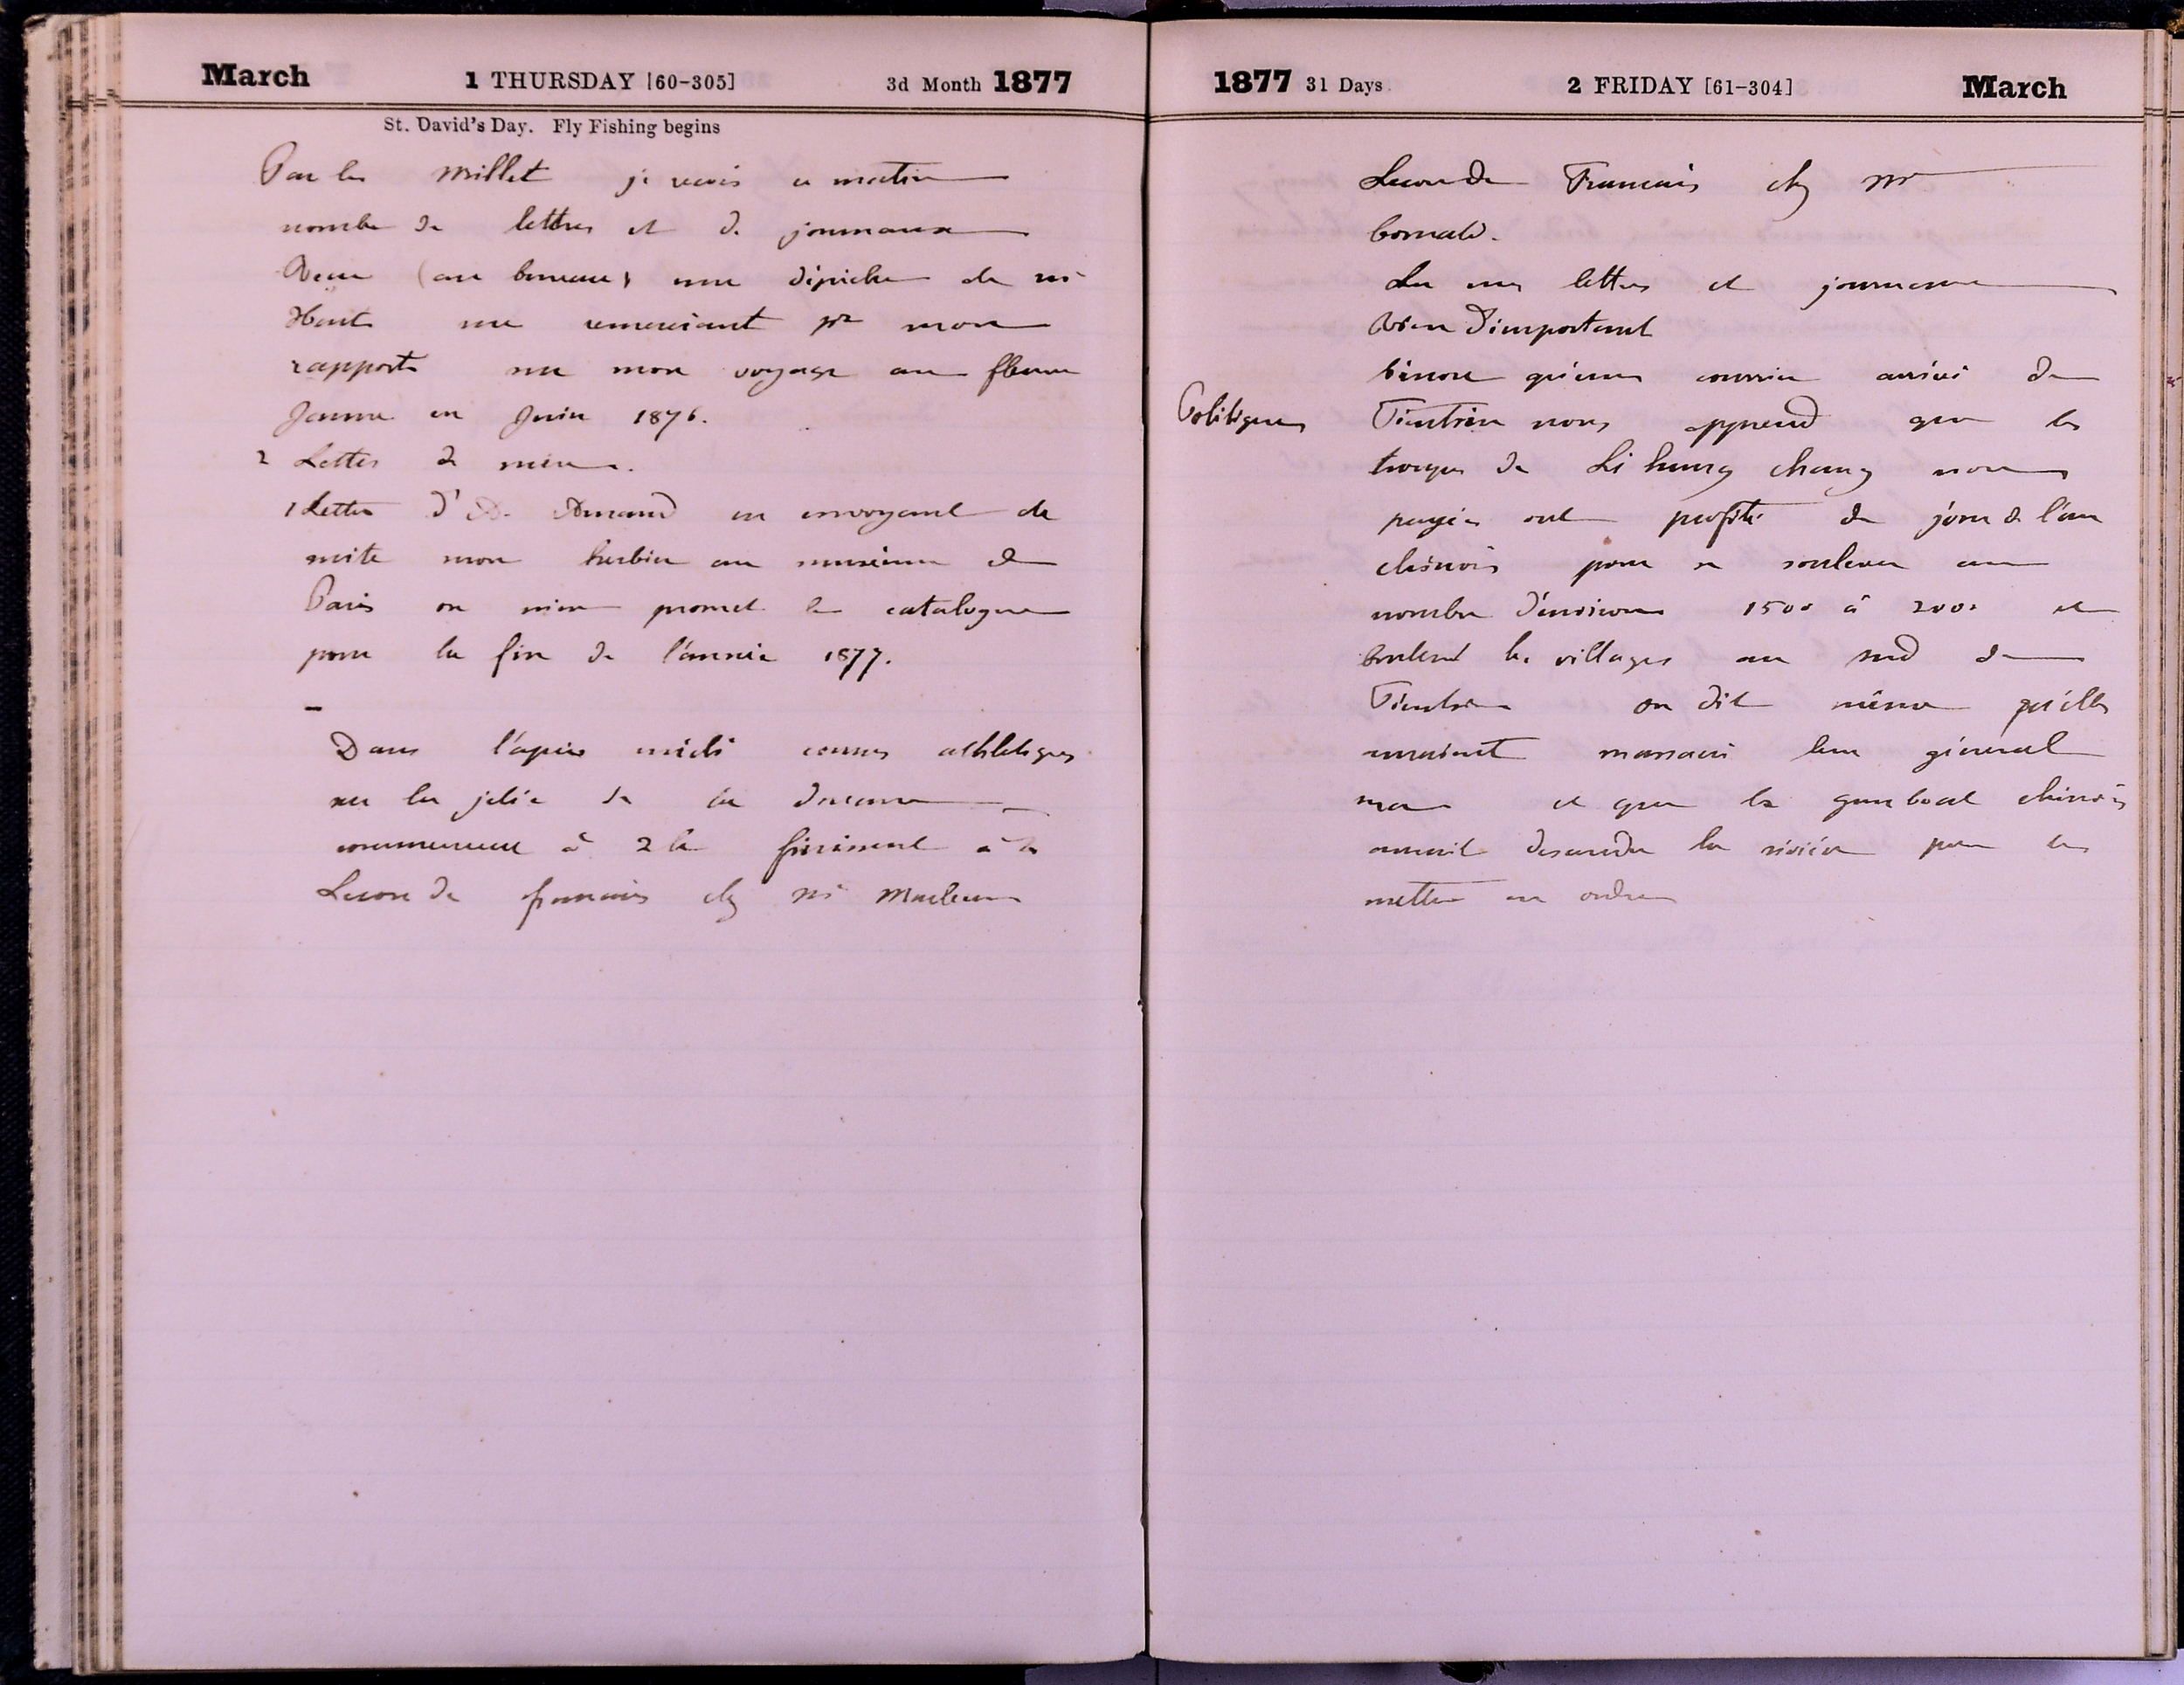 March 1 THURSDAY [60-305] 3d Month 1877
St. David's Day. Fly Fishing begins
Par le Millet je recois ce matin
nombre de lettres et de journaux
Recu (au bureau) une dépêche de Mr
Hart me remerciant pr mon
rapport sur mon voyage au fleuve
Jaune en Juin 1876.
2 Lettres de mère.
1 Lettre d'A. Armand en envoyant de
suite mon herbier au muséum de
Paris on m'en promet le catalogue
pour la fin de l'année 1877.
–
Dans l'après midi courses athlétiques
sur la jetée de la douane
commencent à 2 h finissent à
Lecon de francais chez Mr
1877 31 Days 2 FRIDAY [61-304] March
Lecon de Francais chez Mr
Lu mes lettres et journaux
Rien d'important
Sinon qu'une courrier arrivé de
Politique Tientsin nous apprend que les
troupes de Li hung chang non
payées ont profité du jour de l'an
chinois pour se soulever au
nombre d'environ 1500 à 2000 et
les villages au sud de
Tientsin on dit même qu'elles
auraient massacré leur général
et que le gun boat chinois
aurait descendu la rivière pour les
mettre en ordre